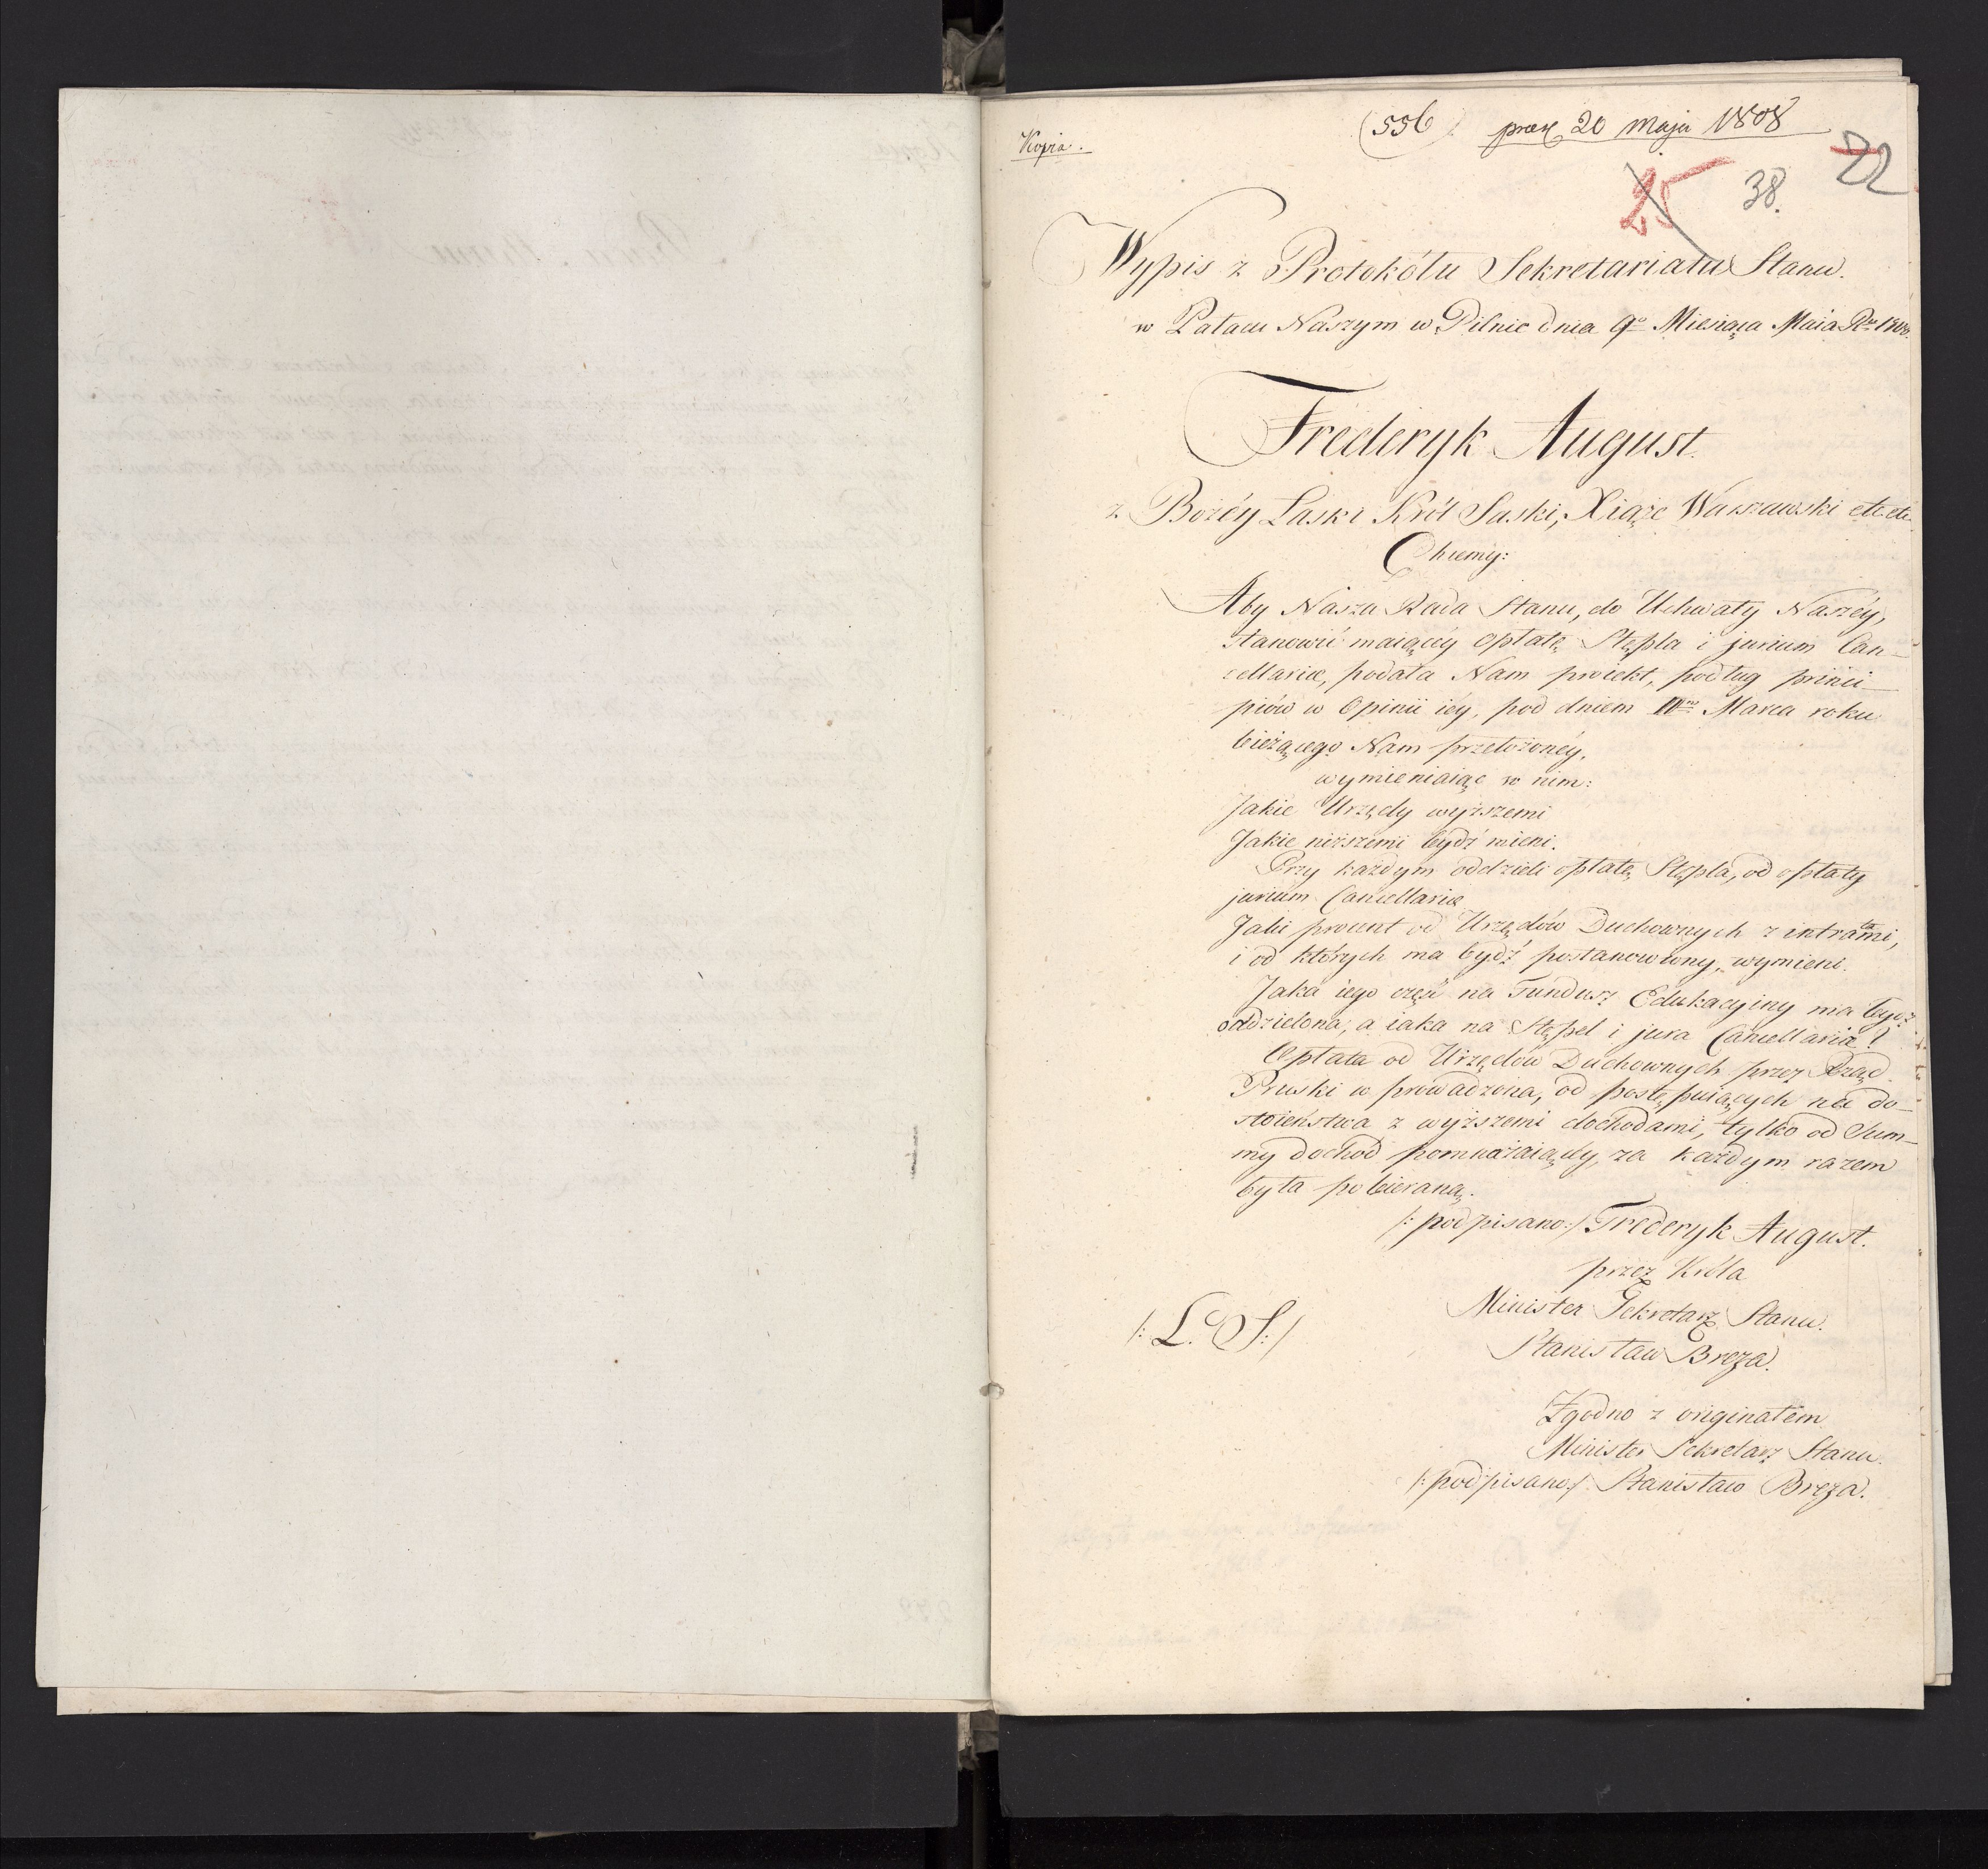 Kopia.
(556) praes 20 Maja 1808
22
25 38.
Wypis z Protokółu Sekretariatu Stanu.
w Pałacu Naszym w Pilnic dnia 9º Miesiąca Maia Rv 1808.
Frederyk August.
z Bożéy Łaski Król Saski, Xiąże Warszawski etc etc
Chcemy:
Aby Nasza Rada Stanu, do Uchwały Naszéy,
stanowić maiącéy opłatę Stępla i jurium Can-
cellariæ, podała Nam proiekt, podług princi-
piów w Opinii iéy, pod dniem Marca roku
bieżącego Nam przełożonéy,
wymieniaiąc w nim:
Jakie Urzędy wyższemi
Jakie niższemi bydź mieni.
Przy każdym oddzieli opłatę Stępla, od opłaty
jurium Cancellariæ
Jaki procent od Urzędów Duchownych z intratami,
i od których ma bydź postanowiony, wymieni.
Jaka iego część na Fundusz Edukacyiny ma bydź
oddzielona, a iaka na Stępel i jura Cancellariæ!
Opłata od Urzędów Duchownych przez Rząd
Pruski w prowadzona, od postępuiących na do-
stoieństwa z wyższemi dochodami, tylko od Sum-
my dochód pomnażaiącéy, za każdym razem
była pobieraną.
/: podpisano:/ Frederyk August.
przez Króla
Minister Sekretarz Stanu.
/: L. S: /
Stanisław Breza.
Zgodno z originałem
Minister Sekretarz Stanu.
/: podpisano:/ Stanisław Breza.